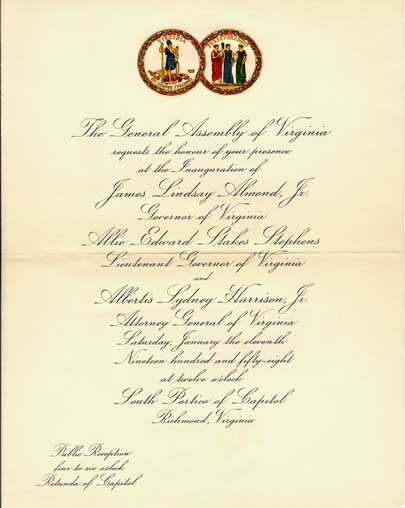 VIRGINIA
The General Assembly of Virginia
requests the honour of your presence
at the Inauguration of
James Lindsay Almond, Jr.
Governor of Virginia
Allie Edward Stakes Stephens
Lieutenant Governor of Virginia
and
Albertis Sydney Harrison, Jr.
Attorney General of Virginia
Saturday, January the eleventh
Nineteen hundred and fifty-eight
at twelve o'clock
South Portico of Capitol
Richmond, Virginia
Public Reception
four to six o'clock
Rotunda of Capitol